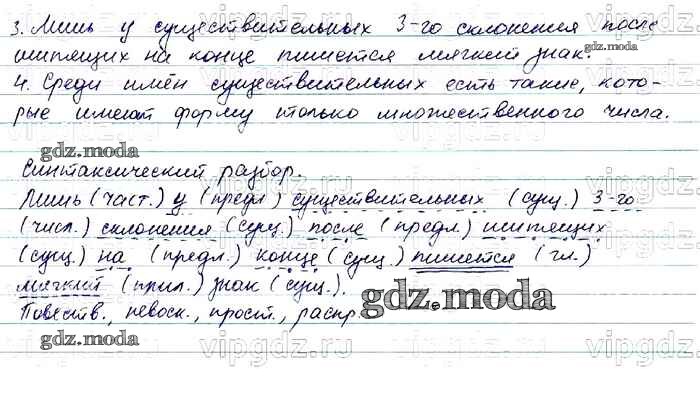 3. Лишь у существительных 3-го склонения после
шипящих на конце пишется мягкий знак.
gdz.moda
4. Среди имён существительных есть такие, кото-
рые имеют форму только множественного числа.
gdz.moda
Синтаксический разбор.
Лишь (част.) у (предл.) существительных (сущ.) 3-го
(числ.) склонения (сущ.) после (предл.) шипящих
(сущ.) на (предл.) конце (сущ.) пишется (гл.)
мягкий (прил.) знак (сущ.).
gdz.moda
Повеств., невоск., прост., распр.
gdz.moda